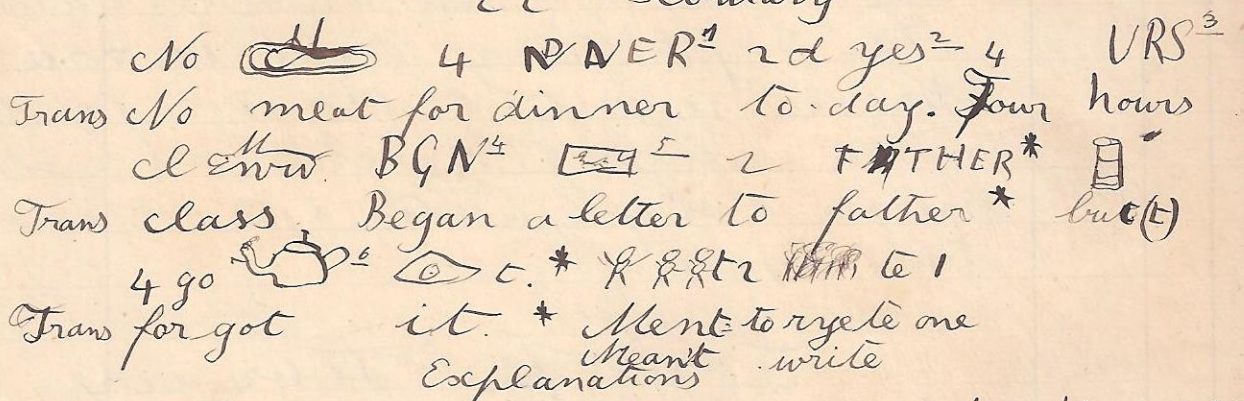 No 4 DINNER 1 2d yes 2 4 URS 3
Trans No meat for dinner to.day. Four hours
BGN 4 5 2 FATHER *
Trans class. Began a letter to father * but(t)
4 go 6 t. * t 2 te 1
Trans for got it. * Ment to ryete one
Meant write
Explanations